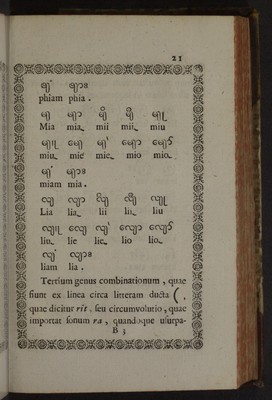 21
ဖျံ ဖျာႏ
phiam phia .
မျ မျာ မျိ မျီ မျု
Mia mia_ mii mii_ miu
မျူ မျေ မျဲ မျော မျော်
miu_ mie mie_ mio mio_
မျံ များ
miam mia .
လျ လျာ လျိ လျီ လျု
Lia lia_ lii lii_ liu
လျူ လျေ လျဲ လျော လျော်
liu_ lie lie_ lio lio_
လျံ လျား
liam lia .
Tertium genus combinationum , quae
fiunt ex linea circa litteram ducta ( ,
quae dicitur rit , seu circumvolutio , quae
importat sonum ra , quandoque usurpa-
B 3